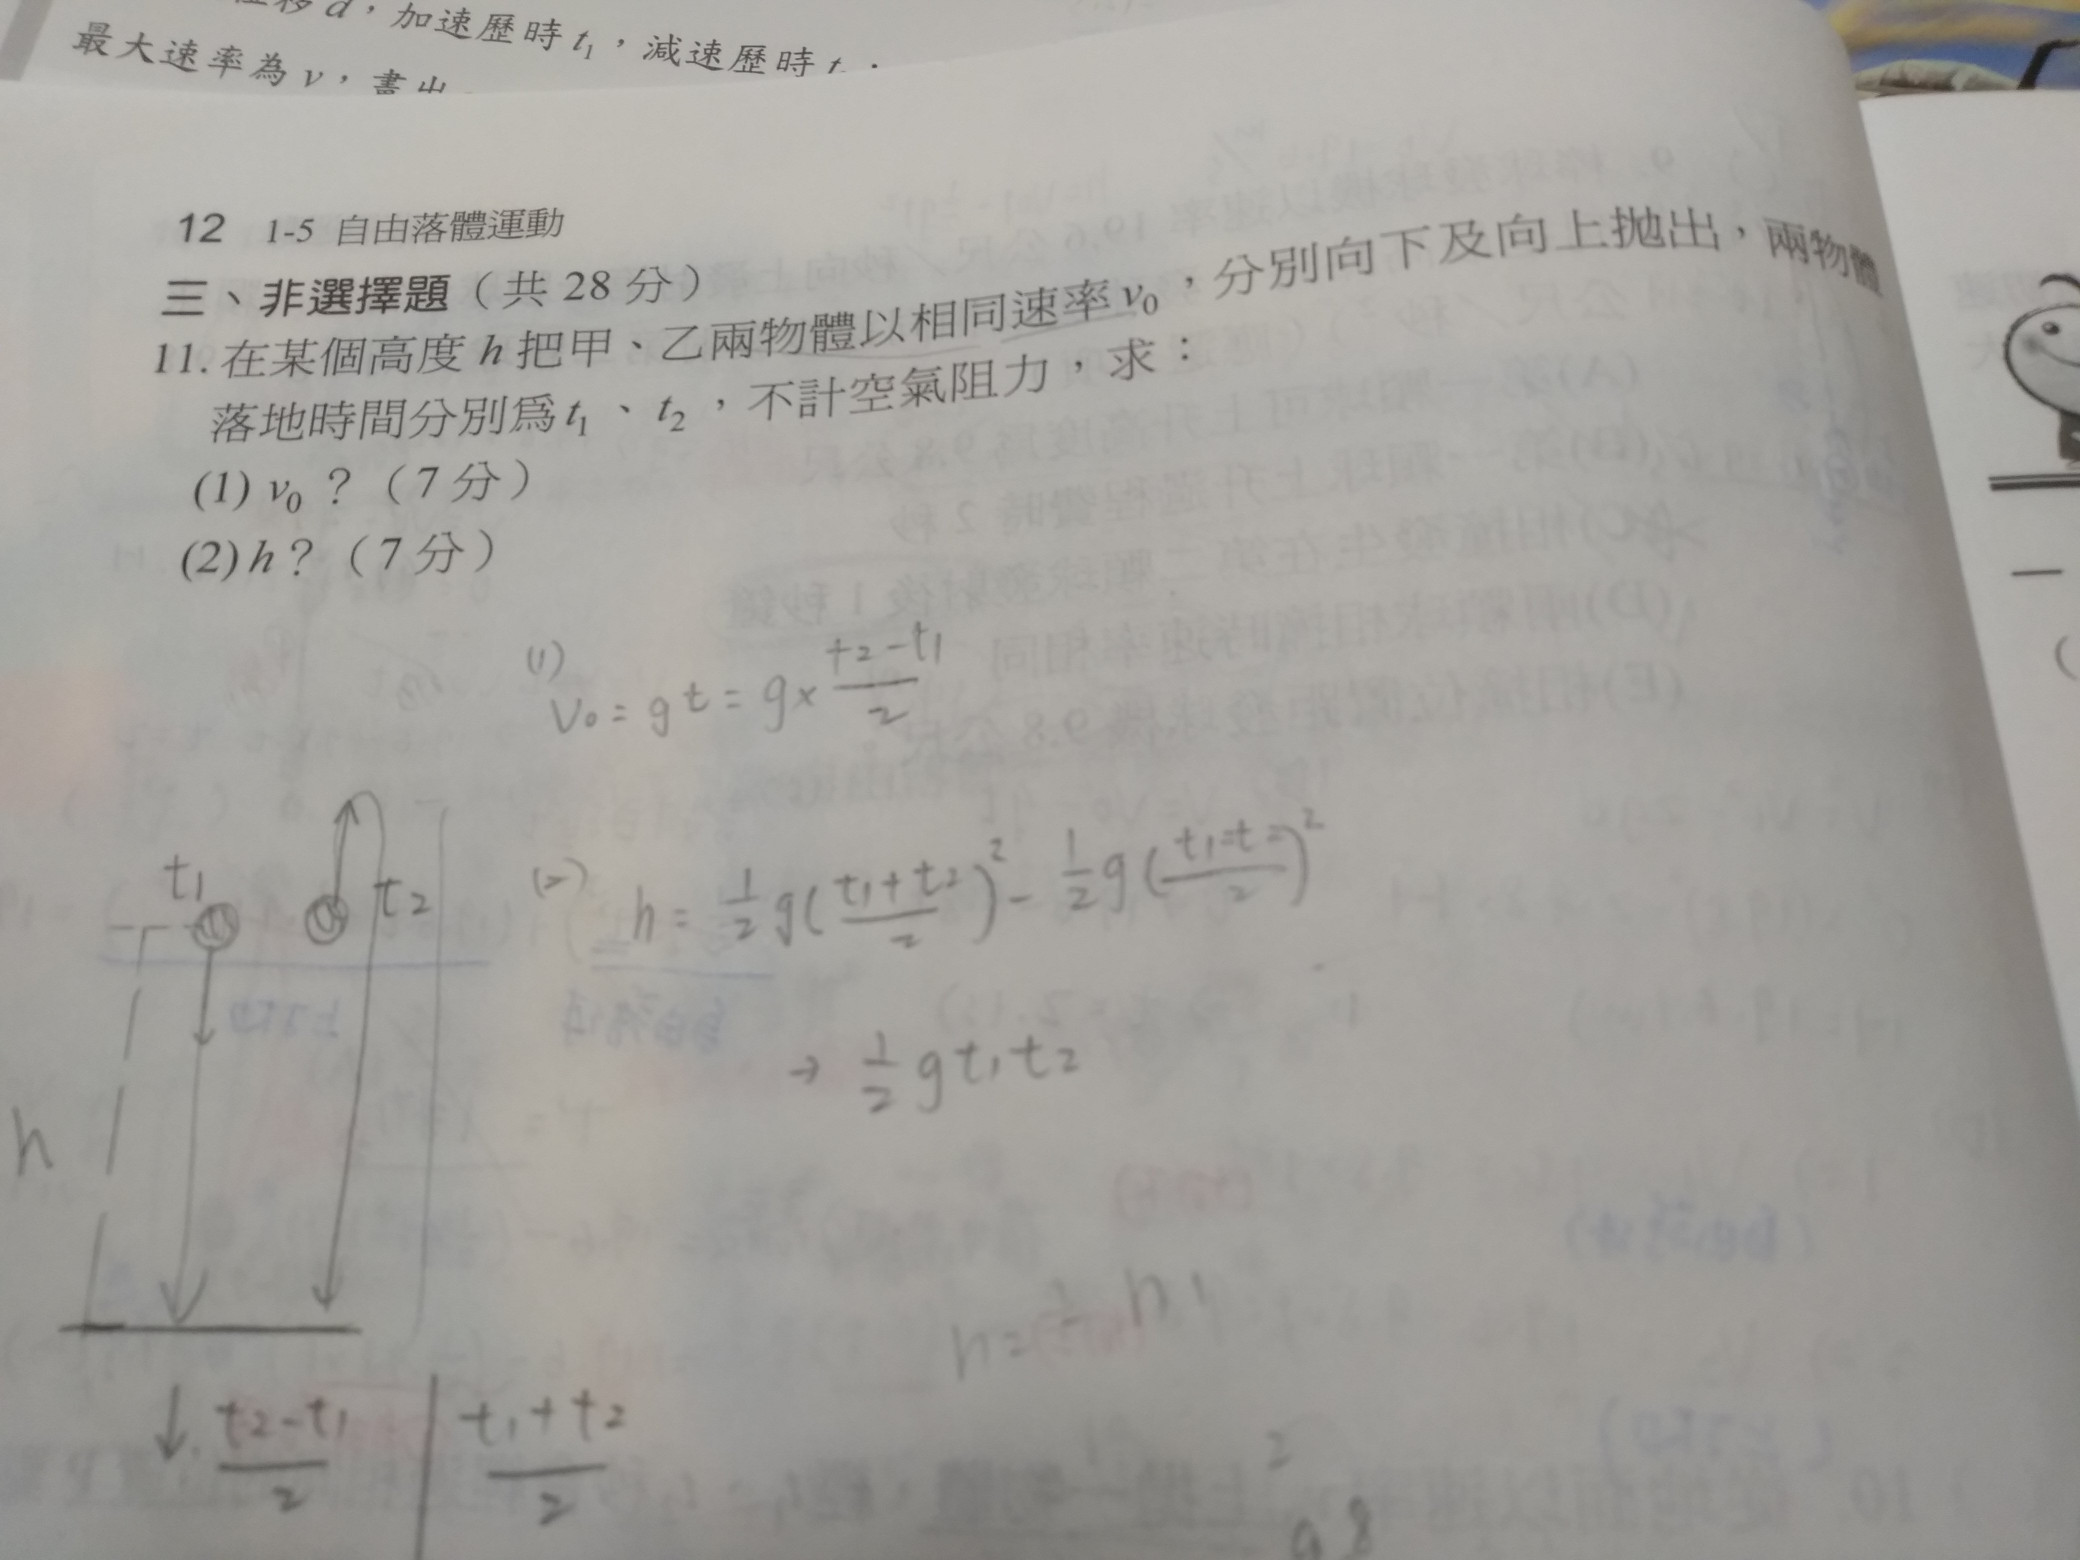 d，加速歷時 t₁，減速歷時
最大速率為 v，畫出
12 1-5 自由落體運動
三、非選擇題（共 28 分）
11. 在某個高度 h 把甲、乙兩物體以相同速率 v₀，分別向下及向上拋出，兩物體
落地時間分別為 t₁、t₂，不計空氣阻力，求：
(1) v₀？（7 分）
(2) h？（7 分）
(1)
V₀ = gt = g × (t₂-t₁)/2
t₁ t₂
(2) h = ½g((t₁+t₂)/2)² - ½g((t₁-t₂)/2)²
→ ½gt₁t₂
h
↓ (t₂-t₁)/2 | (t₁+t₂)/2